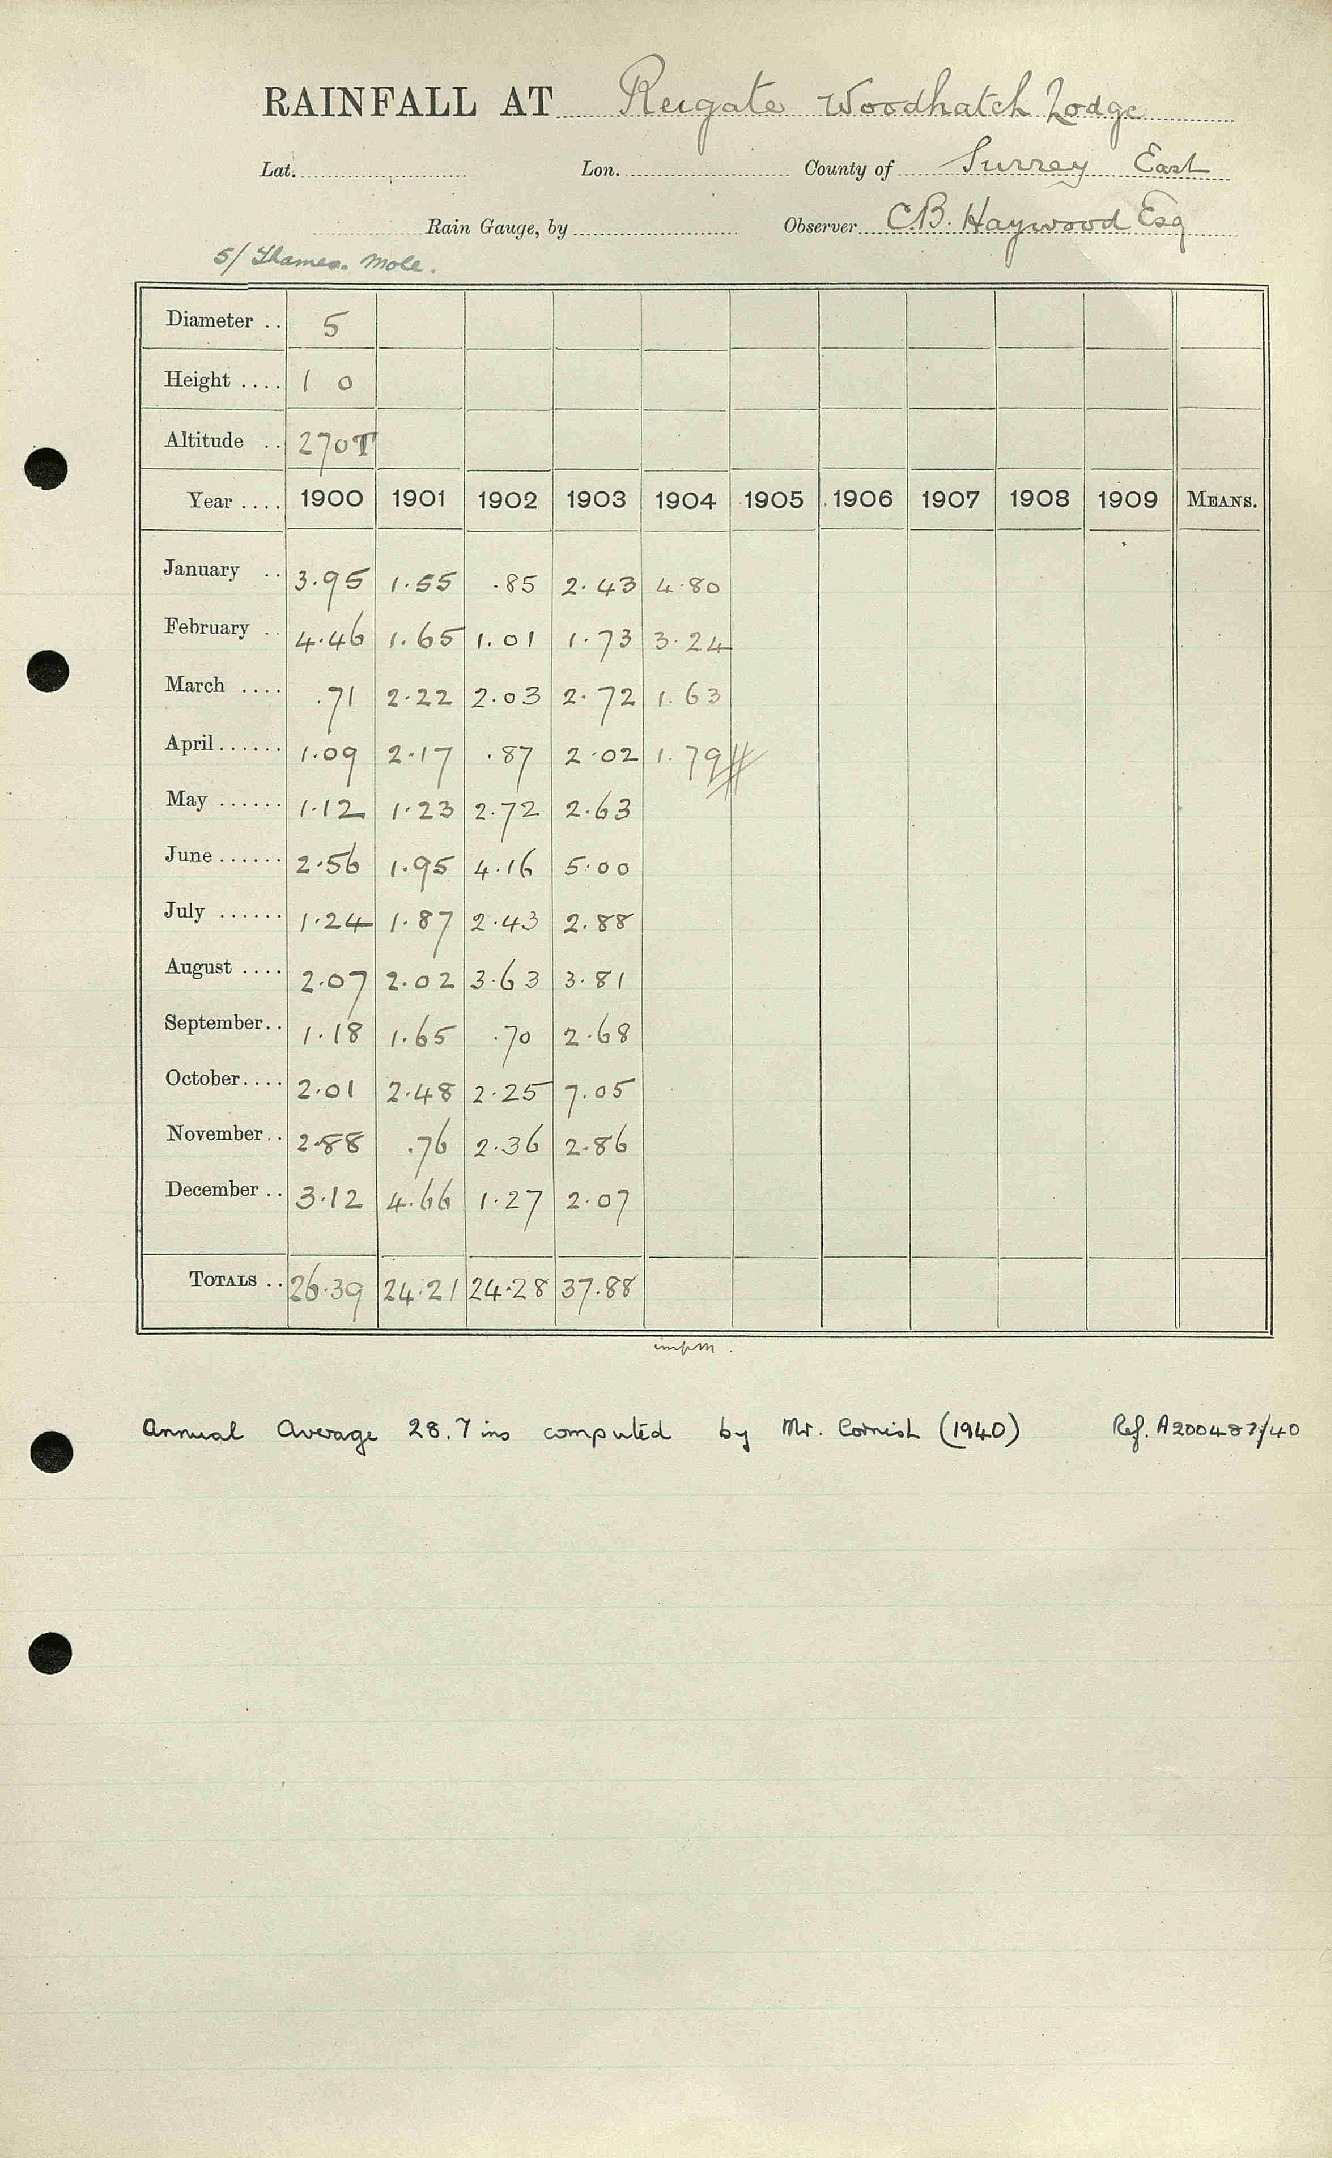 RAINFALL AT Reigate Woodhatch Lodge
Lat. Lon. County of Surrey East
Rain Gauge, by Observer C.B. Haywood Esq
5/ Thames. Mole.
Diameter .. 5
Height .... 1 0
Altitude .. 270T
Year .... 1900 1901 1902 1903 1904 1905 1906 1907 1908 1909 MEANS.
January .. 3.95 1.55 .85 2.43 4.80
February .. 4.46 1.65 1.01 1.73 3.24
March .... .71 2.22 2.03 2.72 1.63
April...... 1.09 2.17 .87 2.02 1.79
May ...... 1.12 1.23 2.72 2.63
June...... 2.56 1.95 4.16 5.00
July ...... 1.24 1.87 2.43 2.88
August .... 2.07 2.02 3.63 3.81
September.. 1.18 1.65 .70 2.68
October.... 2.01 2.48 2.25 7.05
November.. 2.88 .76 2.36 2.86
December .. 3.12 4.66 1.27 2.07
TOTALS .. 26.39 24.21 24.28 37.88
Annual Average 28.7 ins computed by Mr. Cornish (1940) Ref.